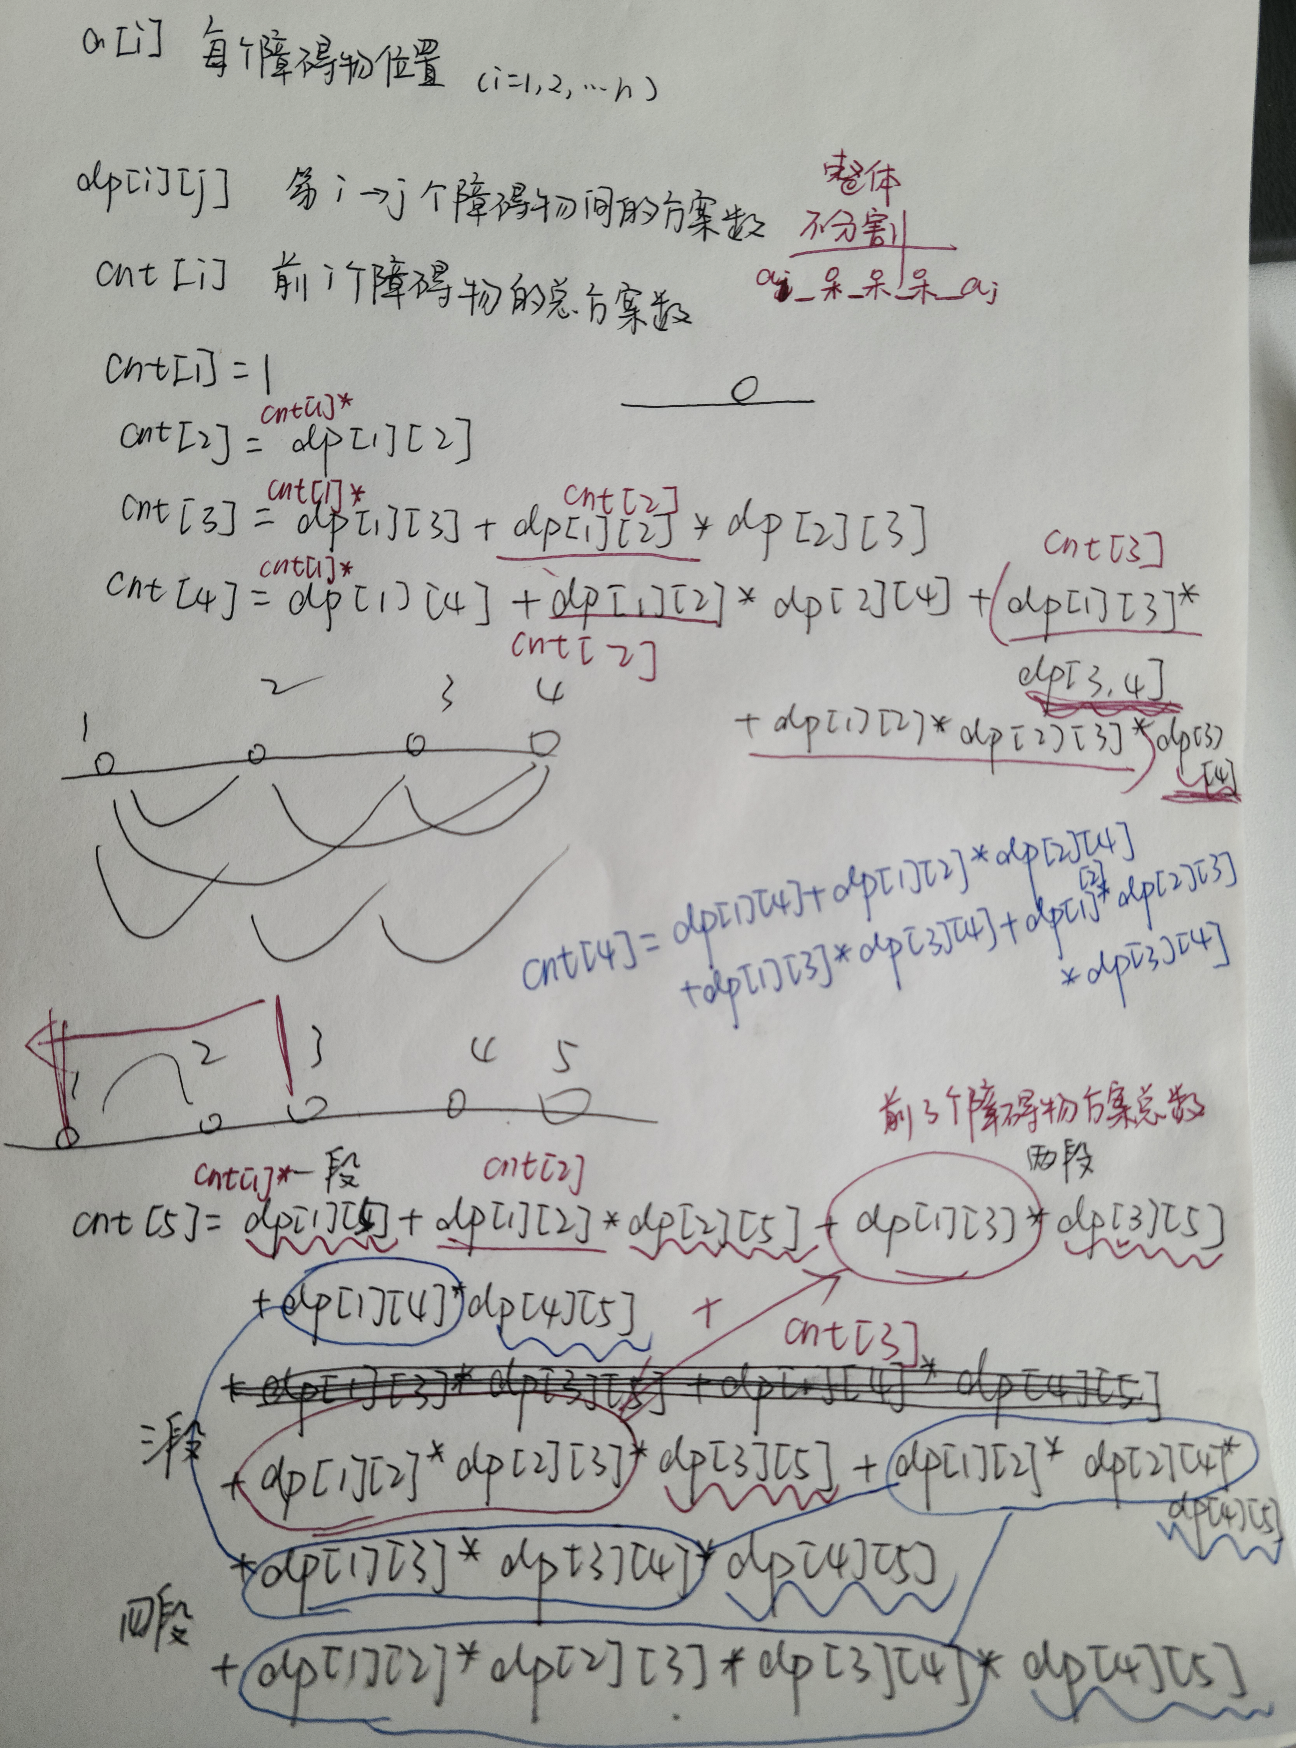 a[i] 每个障碍物位置 (i=1,2,…n)
dp[i][j] 第i→j个障碍物间的方案数
整体
不分割
cnt[i] 前i个障碍物的总方案数
ai_呆_呆_呆_aj
cnt[1]=1
cnt[1]*
cnt[2]=dp[1][2]
cnt[1]* cnt[2]
cnt[3]=dp[1][3]+dp[1][2]*dp[2][3]
cnt[1]* cnt[3]
cnt[4]=dp[1][4]+dp[1][2]*dp[2][4]+(dp[1][3]*
cnt[2]
dp[3,4]
+dp[1][2]*dp[2][3]*)dp[3]
[4]
1 2 3 4
cnt[4]=dp[1][4]+dp[1][2]*dp[2][4]
+dp[1][3]*dp[3][4]+dp[1][2]*dp[2][3]
*dp[3][4]
1 2 3 4 5
前3个障碍物方案总数
cnt[1]* 一段 cnt[2] 两段
cnt[5]=dp[1][5]+dp[1][2]*dp[2][5]+dp[1][3]*dp[3][5]
+dp[1][4]*dp[4][5] + cnt[3]
+dp[1][3]*dp[3][5]+dp[1][4]*dp[4][5]
三段
+dp[1][2]*dp[2][3]*dp[3][5]+dp[1][2]*dp[2][4]*
dp[4][5]
+dp[1][3]*dp[3][4]*dp[4][5]
四段
+dp[1][2]*dp[2][3]*dp[3][4]*dp[4][5]